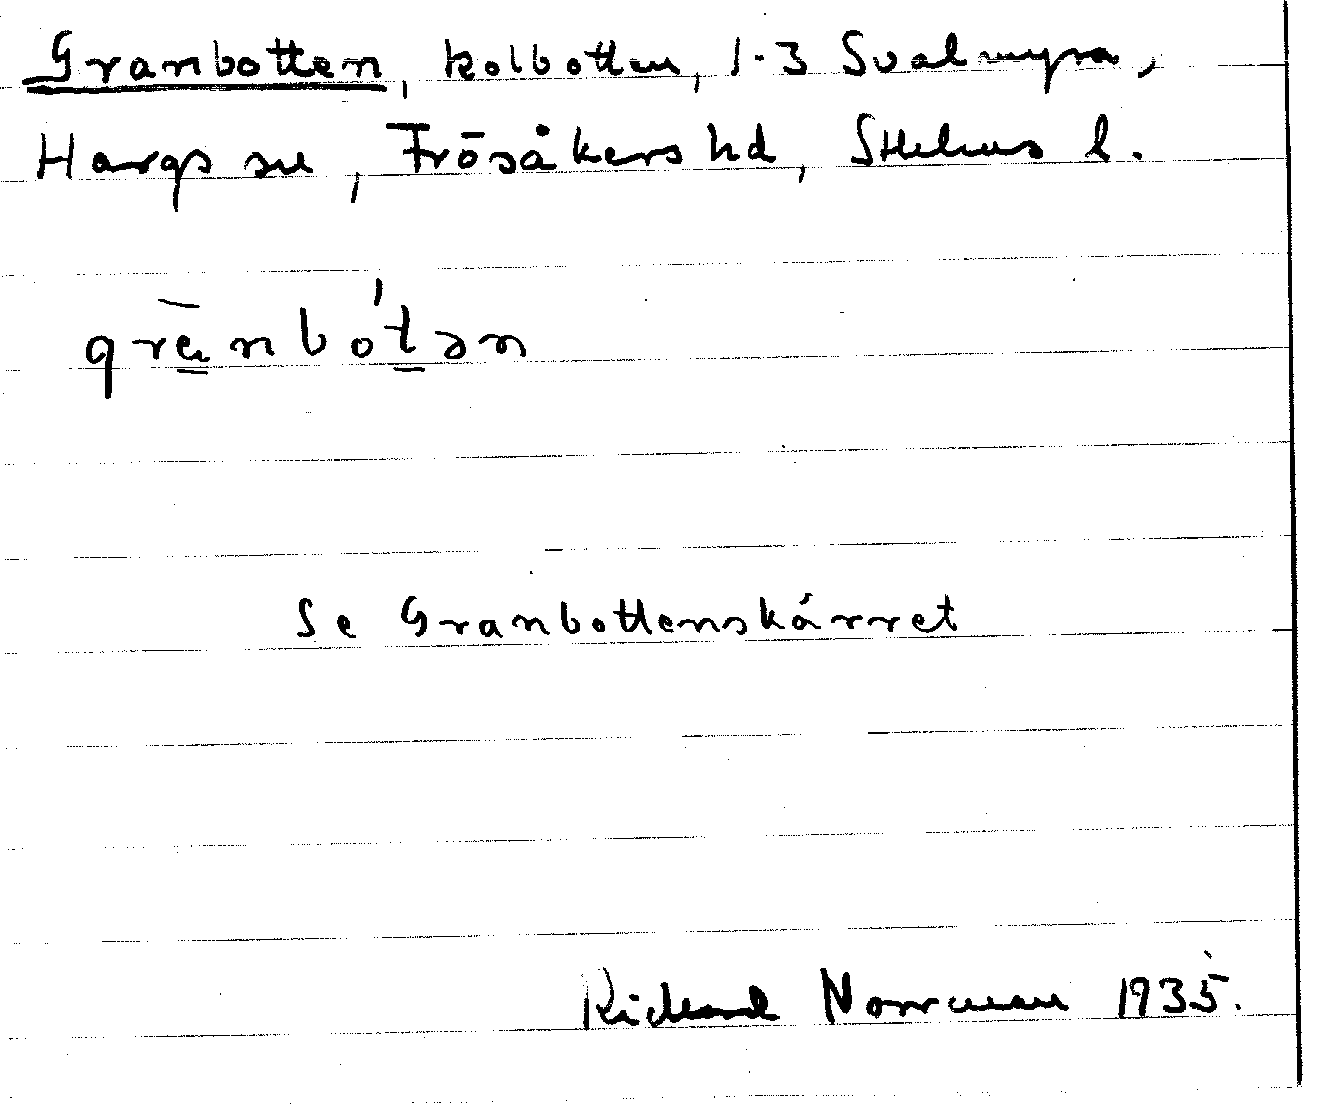 Granbotten, kolbotten, 1-3 Svalmyra,
Hargs sn, Frösåkers hd, Sthlms l.
grⱥnbo´tən
Se Granbottenskärret
Rickard Norrman 1935.